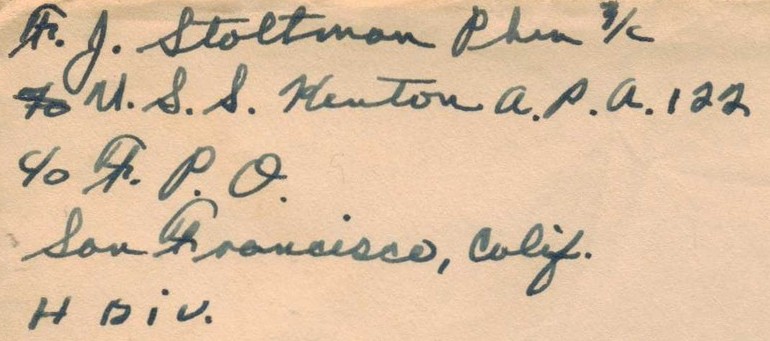 F. J. Stoltman Phm 3/c
℅ U. S. S. Kenton A.P.A. 122
c/o F. P. O.
San Francisco, Calif.
H Div.